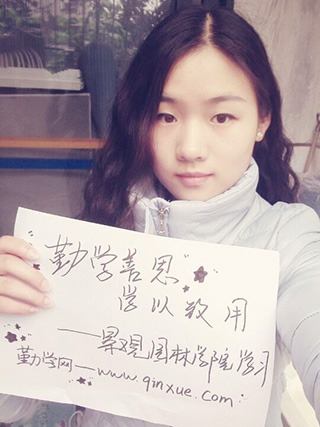 勤学善思
学以致用
——景观园林学院学习
勤学网——www.qinxue.com